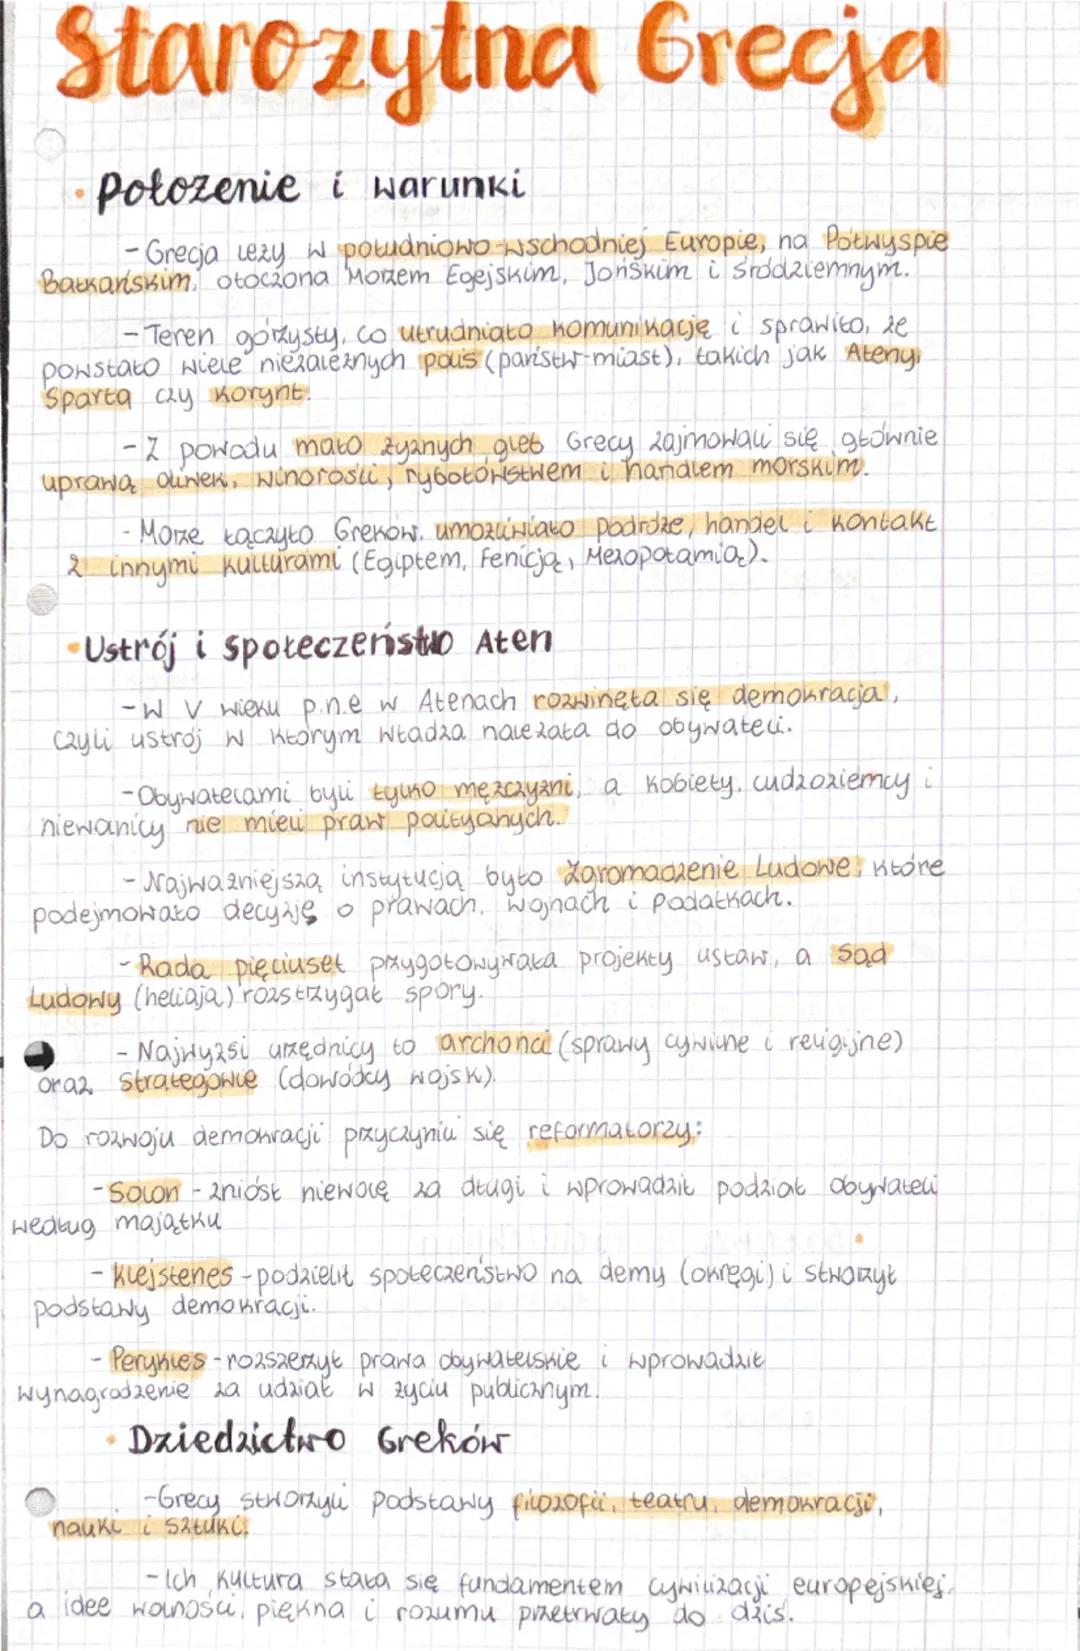 Starożytna Grecja
• Położenie i warunki
- Grecja leży w południowo-wschodniej Europie, na Półwyspie
Bałkańskim, otoczona Morzem Egejskim, Jońskim i Śródziemnym.
- Teren górzysty, co utrudniało komunikację i sprawiło, że
powstało wiele niezależnych polis (państw-miast), takich jak Ateny,
Sparta czy Korynt.
- Z powodu mało żyznych gleb Grecy zajmowali się głównie
uprawą oliwek, winorośli, rybołówstwem i handlem morskim.
- Morze łączyło Greków, umożliwiało podróże, handel i kontakt
z innymi kulturami (Egiptem, Fenicją, Mezopotamią).
• Ustrój i społeczeństwo Aten
- W V wieku p.n.e w Atenach rozwinęła się demokracja,
czyli ustrój w którym władza należała do obywateli.
- Obywatelami byli tylko mężczyźni, a kobiety, cudzoziemcy i
niewonicy nie mieli praw politycznych.
- Najważniejszą instytucją było Zgromadzenie Ludowe, które
podejmowało decyzję o prawach, wojnach i podatkach.
- Rada pięciuset przygotowywała projekty ustaw, a Sąd
Ludowy (heliaja) rozstrzygał spory.
- Najwyżsi urzędnicy to archonci (sprawy cywilne i religijne)
oraz strategowie (dowódcy wojsk).
Do rozwoju demokracji przyczynili się reformatorzy:
- Solon - zniósł niewolę za długi i wprowadził podział obywateli
według majątku
- Klejstenes - podzielił społeczeństwo na demy (okręgi) i stworzył
podstawy demokracji.
- Perykles - rozszerzył prawa obywatelskie i wprowadził
wynagrodzenie za udział w życiu publicznym.
• Dziedzictwo Greków
- Grecy stworzyli podstawy filozofii, teatru, demokracji,
nauki i sztuki.
- Ich kultura stała się fundamentem cywilizacji europejskiej,
a idee wolności, piękna i rozumu przetrwały do dziś.